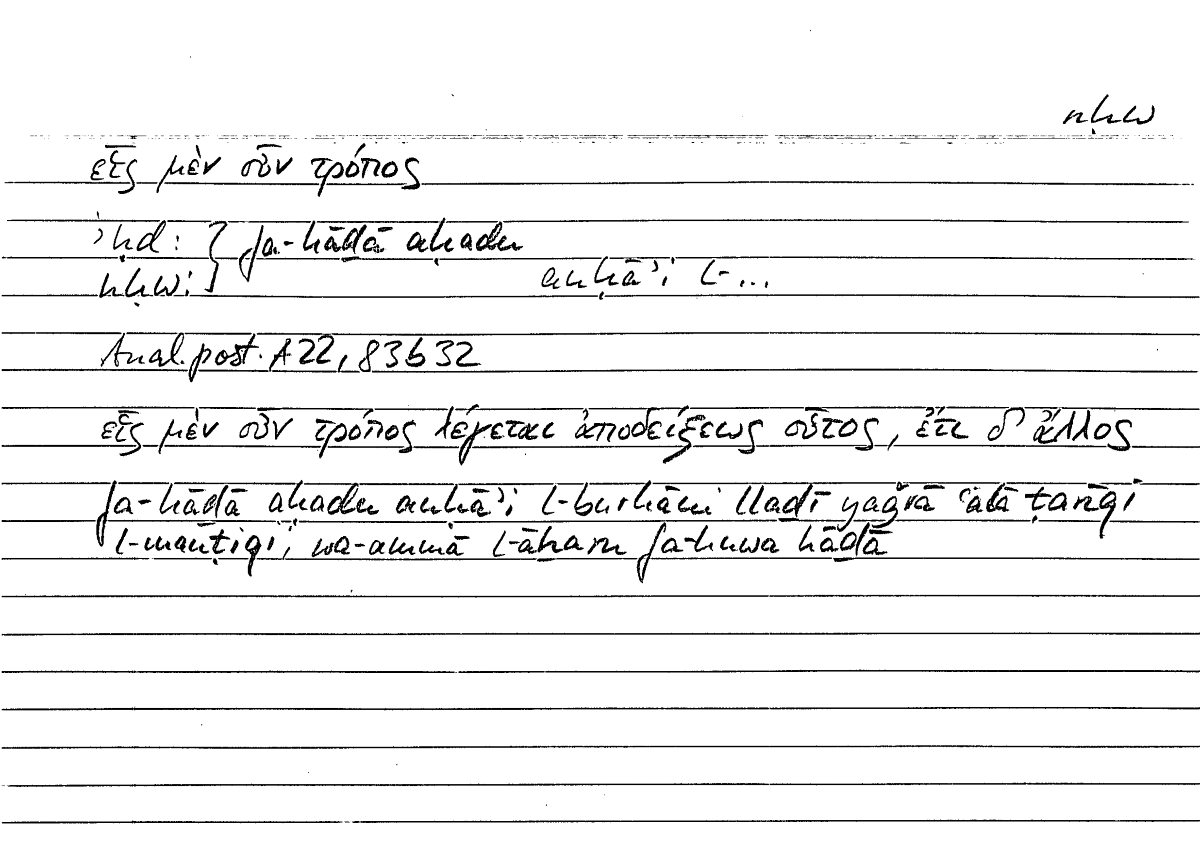 nḥw
εἷς μὲν οὖν τρόπος
ʾḥd: } fa-hāḏā aḥadu
nḥw: } anḥāʾi l-...
Anal. post. A 22, 83b32
εἷς μὲν οὖν τρόπος λέγεται ἀποδείξεως οὗτος, ἔτι δ’ ἄλλος
fa-hāḏā aḥadu anḥāʾi l-burhāni llaḏī yaǧrā ʿalā ṭarīqi
l-manṭiqi, wa-ammā l-āḫaru fa-huwa hāḏā